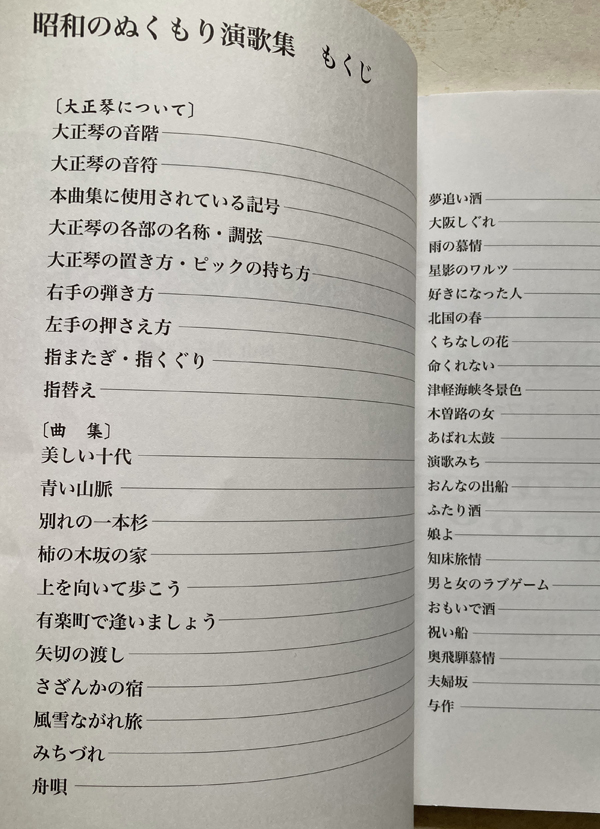 昭和のぬくもり演歌集 もくじ
〔大正琴について〕
大正琴の音階
大正琴の音符
本曲集に使用されている記号
大正琴の各部の名称・調弦
大正琴の置き方・ピックの持ち方
右手の弾き方
左手の押さえ方
指またぎ・指くぐり
指替え
〔曲 集〕
美しい十代
青い山脈
別れの一本杉
柿の木坂の家
上を向いて歩こう
有楽町で逢いましょう
矢切の渡し
さざんかの宿
風雪ながれ旅
みちづれ
舟唄
夢追い酒
大阪しぐれ
雨の慕情
星影のワルツ
好きになった人
北国の春
くちなしの花
命くれない
津軽海峡冬景色
木曽路の女
あばれ太鼓
演歌みち
おんなの出船
ふたり酒
娘よ
知床旅情
男と女のラブゲーム
おもいで酒
祝い船
奥飛騨慕情
夫婦坂
与作